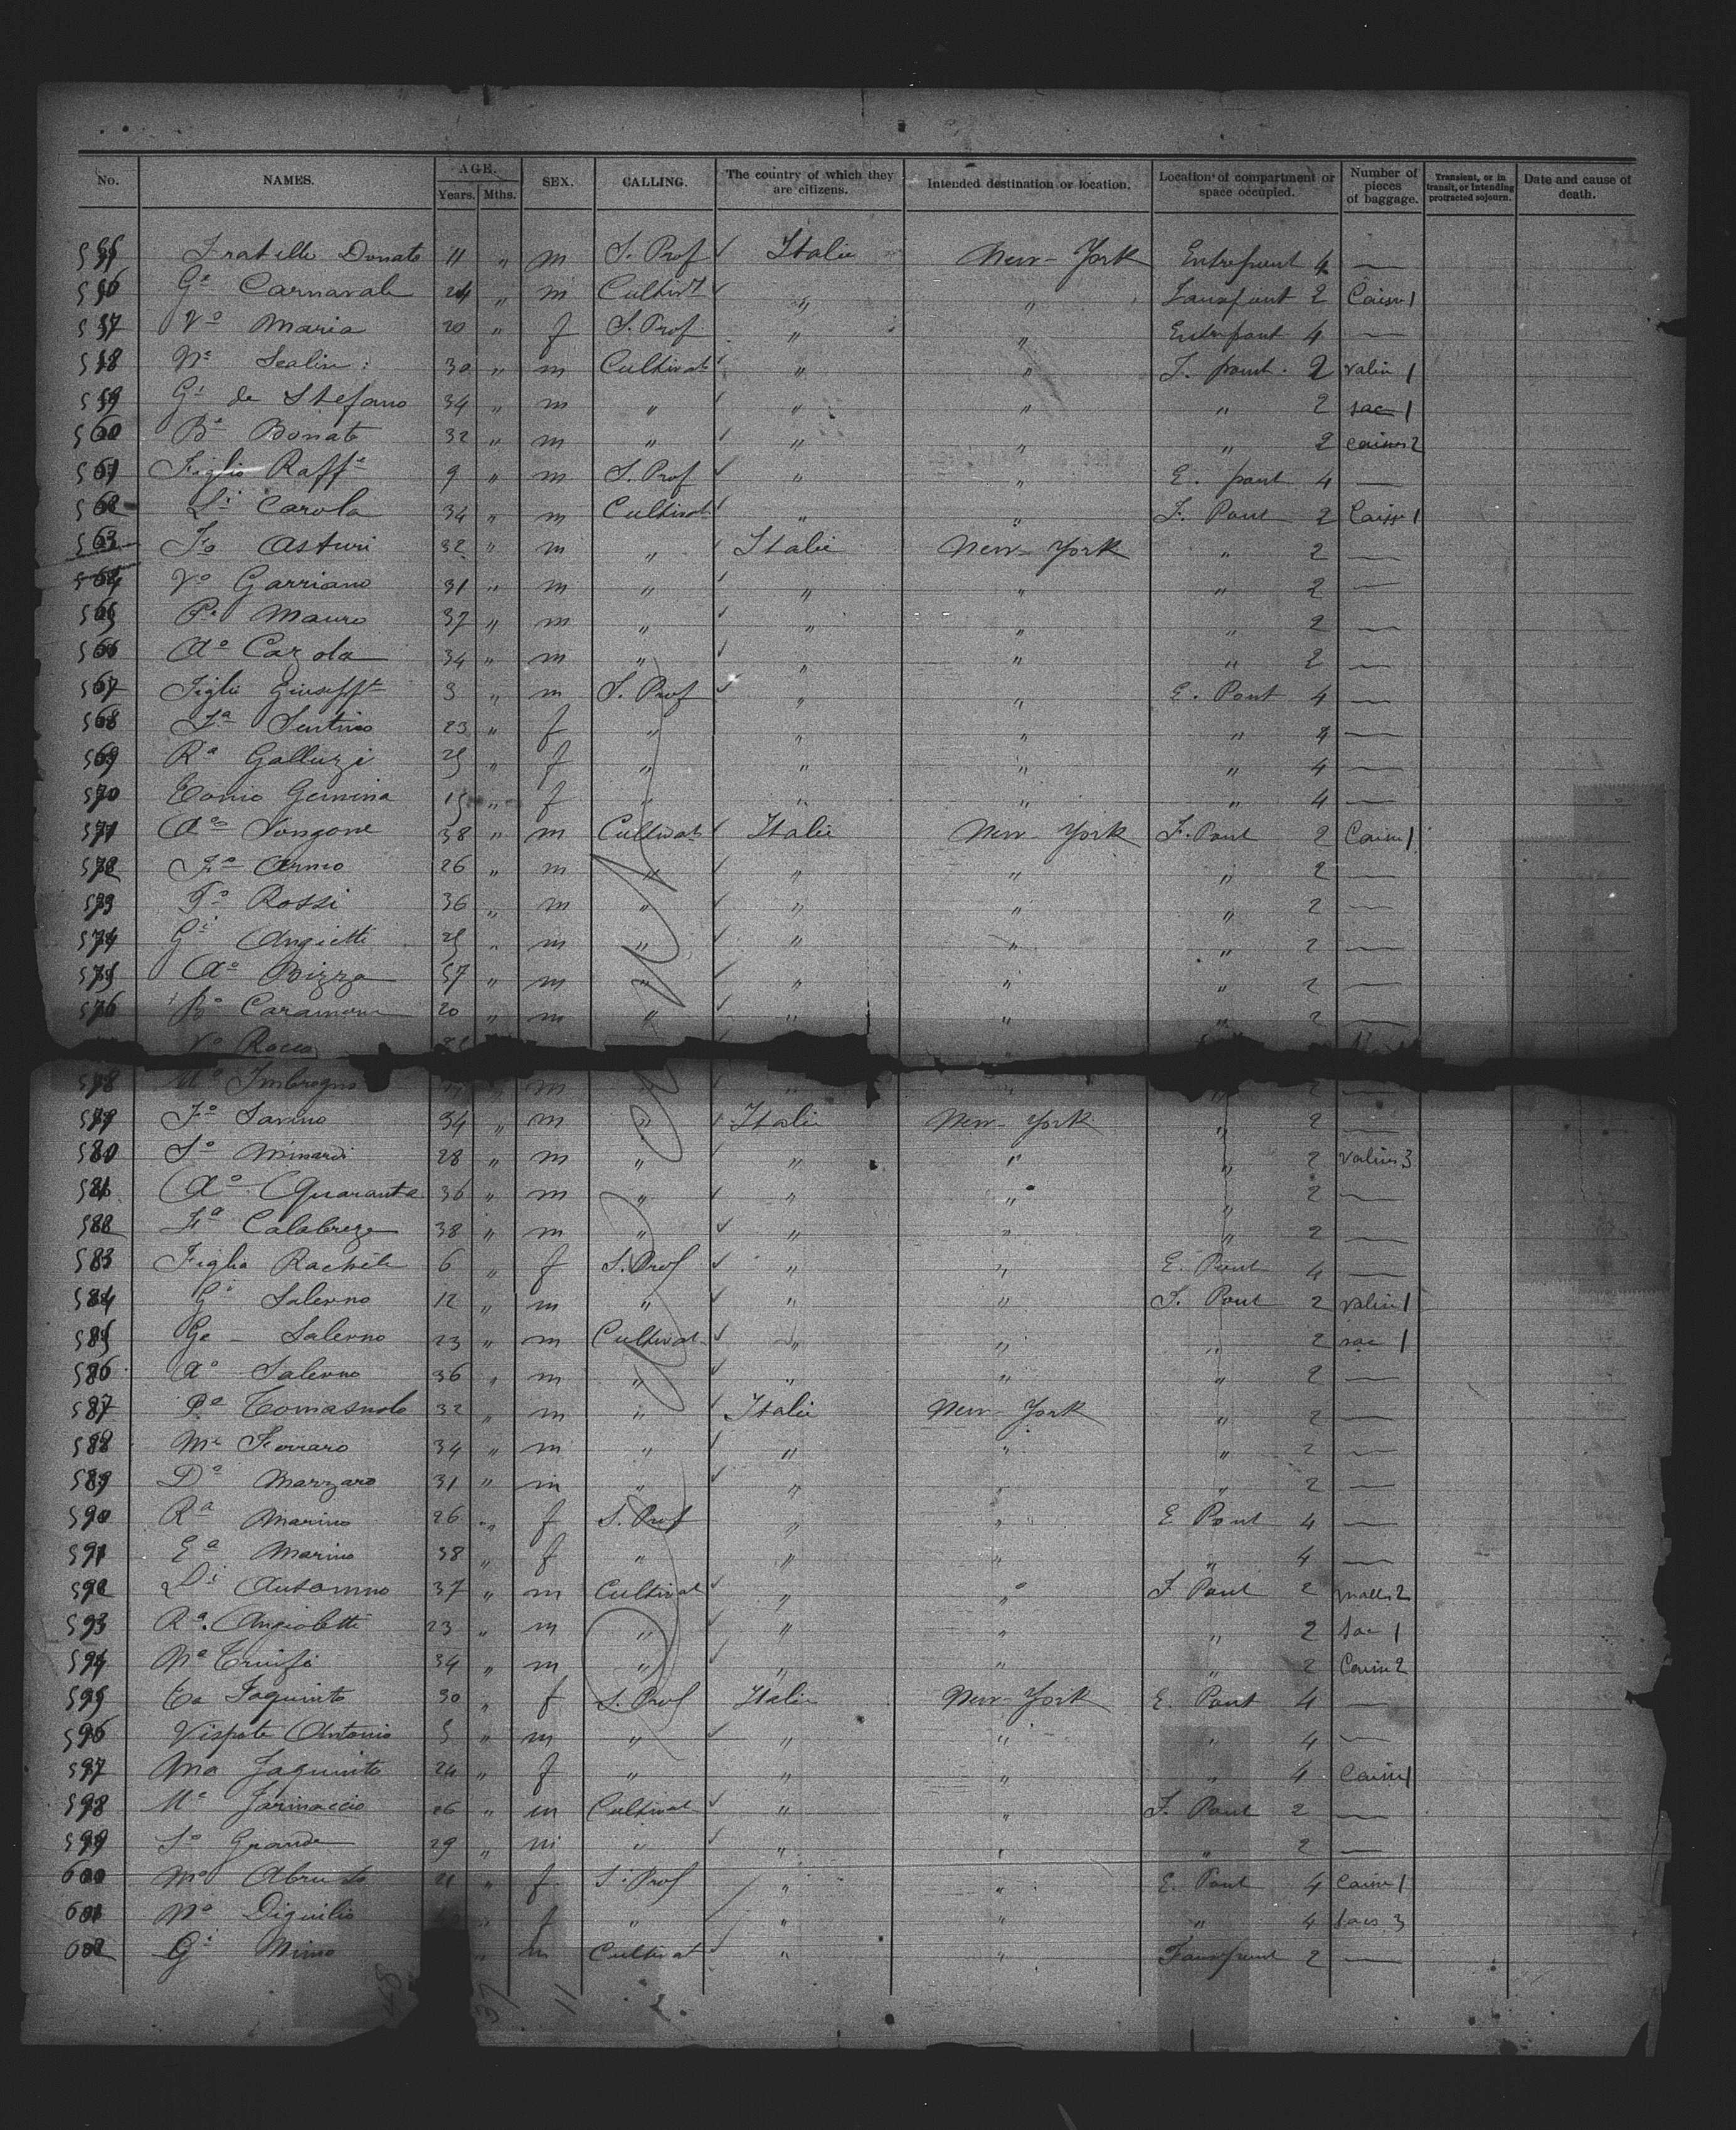 No. NAMES. AGE. Years. Mths. SEX. CALLING. The country of which they are citizens. Intended destination or location. Location of compartment or space occupied. Number of pieces of baggage. Transient, or in transit, or intending protracted sojourn. Date and cause of death.
555 Fratello Donato 11 " m S. Prof Italie New-York Entrepont 4 —
556 Ge Carnavale 24 " m Cultivt " " 2 Caisse 1
557 Vo Maria 20 " f S. Prof " " Entrepont 4 —
558 30 " m Cultivat " " F. pont 2 valise 1
559 Gi de Stefano 34 " m " " " " 2 sac 1
560 Bo Bonato 32 " m " " " " 2 caisses 2
561 Figlio Raffe 9 " m S. Prof " " E. pont 4 —
562 Li Carola 34 " m Cultivat " " F. Pont 2 Caisse 1
563 Fo Asturi 32 " m " Italie New-York " 2 —
564 Vo Garriano 31 " m " " " " 2 —
565 Pe Mauro 37 " m " " " " 2 —
566 Ao Cazola 34 " m " " " " 2 —
567 Figlio Giuseppe 3 " m S. Prof " " E. Pont 4 —
568 Fa Sentino 23 " f " " " " 4 —
569 Ra Galluzi 25 " f " " " " 4 —
570 Gemina 15 " f " " " " 4 —
571 Ao Longone 38 " m Cultivat Italie New-York F. Pont 2 Caisse 1
572 Fo Armo 26 " m " " " " 2 —
573 Fo Rossi 36 " m " " " " 2 —
574 Gi Angietti 25 " m " " " " 2 —
575 Ao Bizza 57 " m " " " " 2 —
576 Bo Caramone 20 " m " " " " 2 —
Vo Rocco
578 Mo Imbrogno m " " 2 —
579 Fo Savino 34 " m " Italie New-York " 2 —
580 So Minardi 28 " m " " " " 2 valises 3
581 Ao Quaranta 36 " m " " " " 2 —
582 Fa Calabreze 38 " m " " " " 2 —
583 Figlia Rachele 6 " f S. Prof " " E. Pont 4 —
584 Gi Salerno 12 " m " " " F. Pont 2 valise 1
585 Ge Salerno 23 " m Cultivat " " " 2 sac 1
586 Ao Salerno 36 " m " " " " 2 —
587 Pa Tomasuolo 32 " m " Italie New-York " 2 —
588 Me Ferraro 34 " m " " " " 2 —
589 Do Marzaro 31 " m " " " " 2 —
590 Ra Marino 26 " f S. Prof " " E Pont 4 —
591 Ea Marino 38 " f " " " " 4 —
592 Di 37 " m Cultivat " " F Pont 2 malles 2
593 Ra Angioletti 23 " m " " " " 2 Sac 1
594 Na 34 " m " " " " 2 Caisse 2
595 Ca Iaquinto 30 " f S. Prof Italie New-York E. Pont 4 —
596 Vispote Antonio 5 " m " " " " 4 —
597 Ma Iaquinto 24 " f " " " " 4 Caisse 1
598 Me Farinaccio 26 " m Cultivat " " F. Pont 2 —
599 So Grande 29 " m " " " " 2 —
600 Ma 21 " f S. Prof " " E. Pont 4 Caisse 1
601 Ma Diguilio " f " " " " 4 Sacs 3
602 Gi Mimo " m Cultivat " " 2 —
37 11